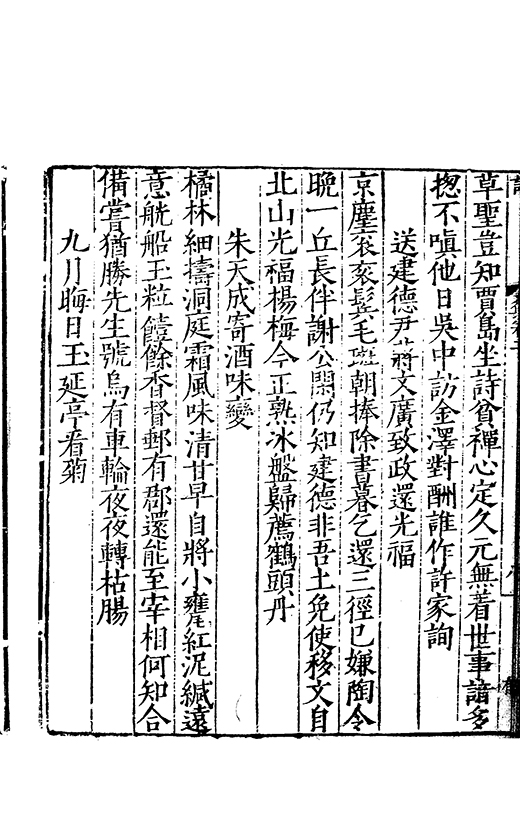 草聖豈知賈島坐詩貧禪心定久元無着世事諳多
揔不嗔他日吳中訪金澤對酬誰作許家詢
送建德尹蔣文廣致政還光福
京塵衮衮鬢毛斑朝捧除書暮乞還三徑已嫌陶令
晚一丘長伴謝公閑仍知建德非吾土免使移文自
北山光福楊梅今正熟冰盤歸薦鶴頭丹
朱天成寄酒味變
橘林細擣洞庭霜風味清甘早自將小甕紅泥緘遠
意觥船玉粒饐餘香督郵有郡還能至宰相何知合
備嘗猶勝先生號烏有車輪夜夜轉枯腸
九月晦日玉延亭看菊